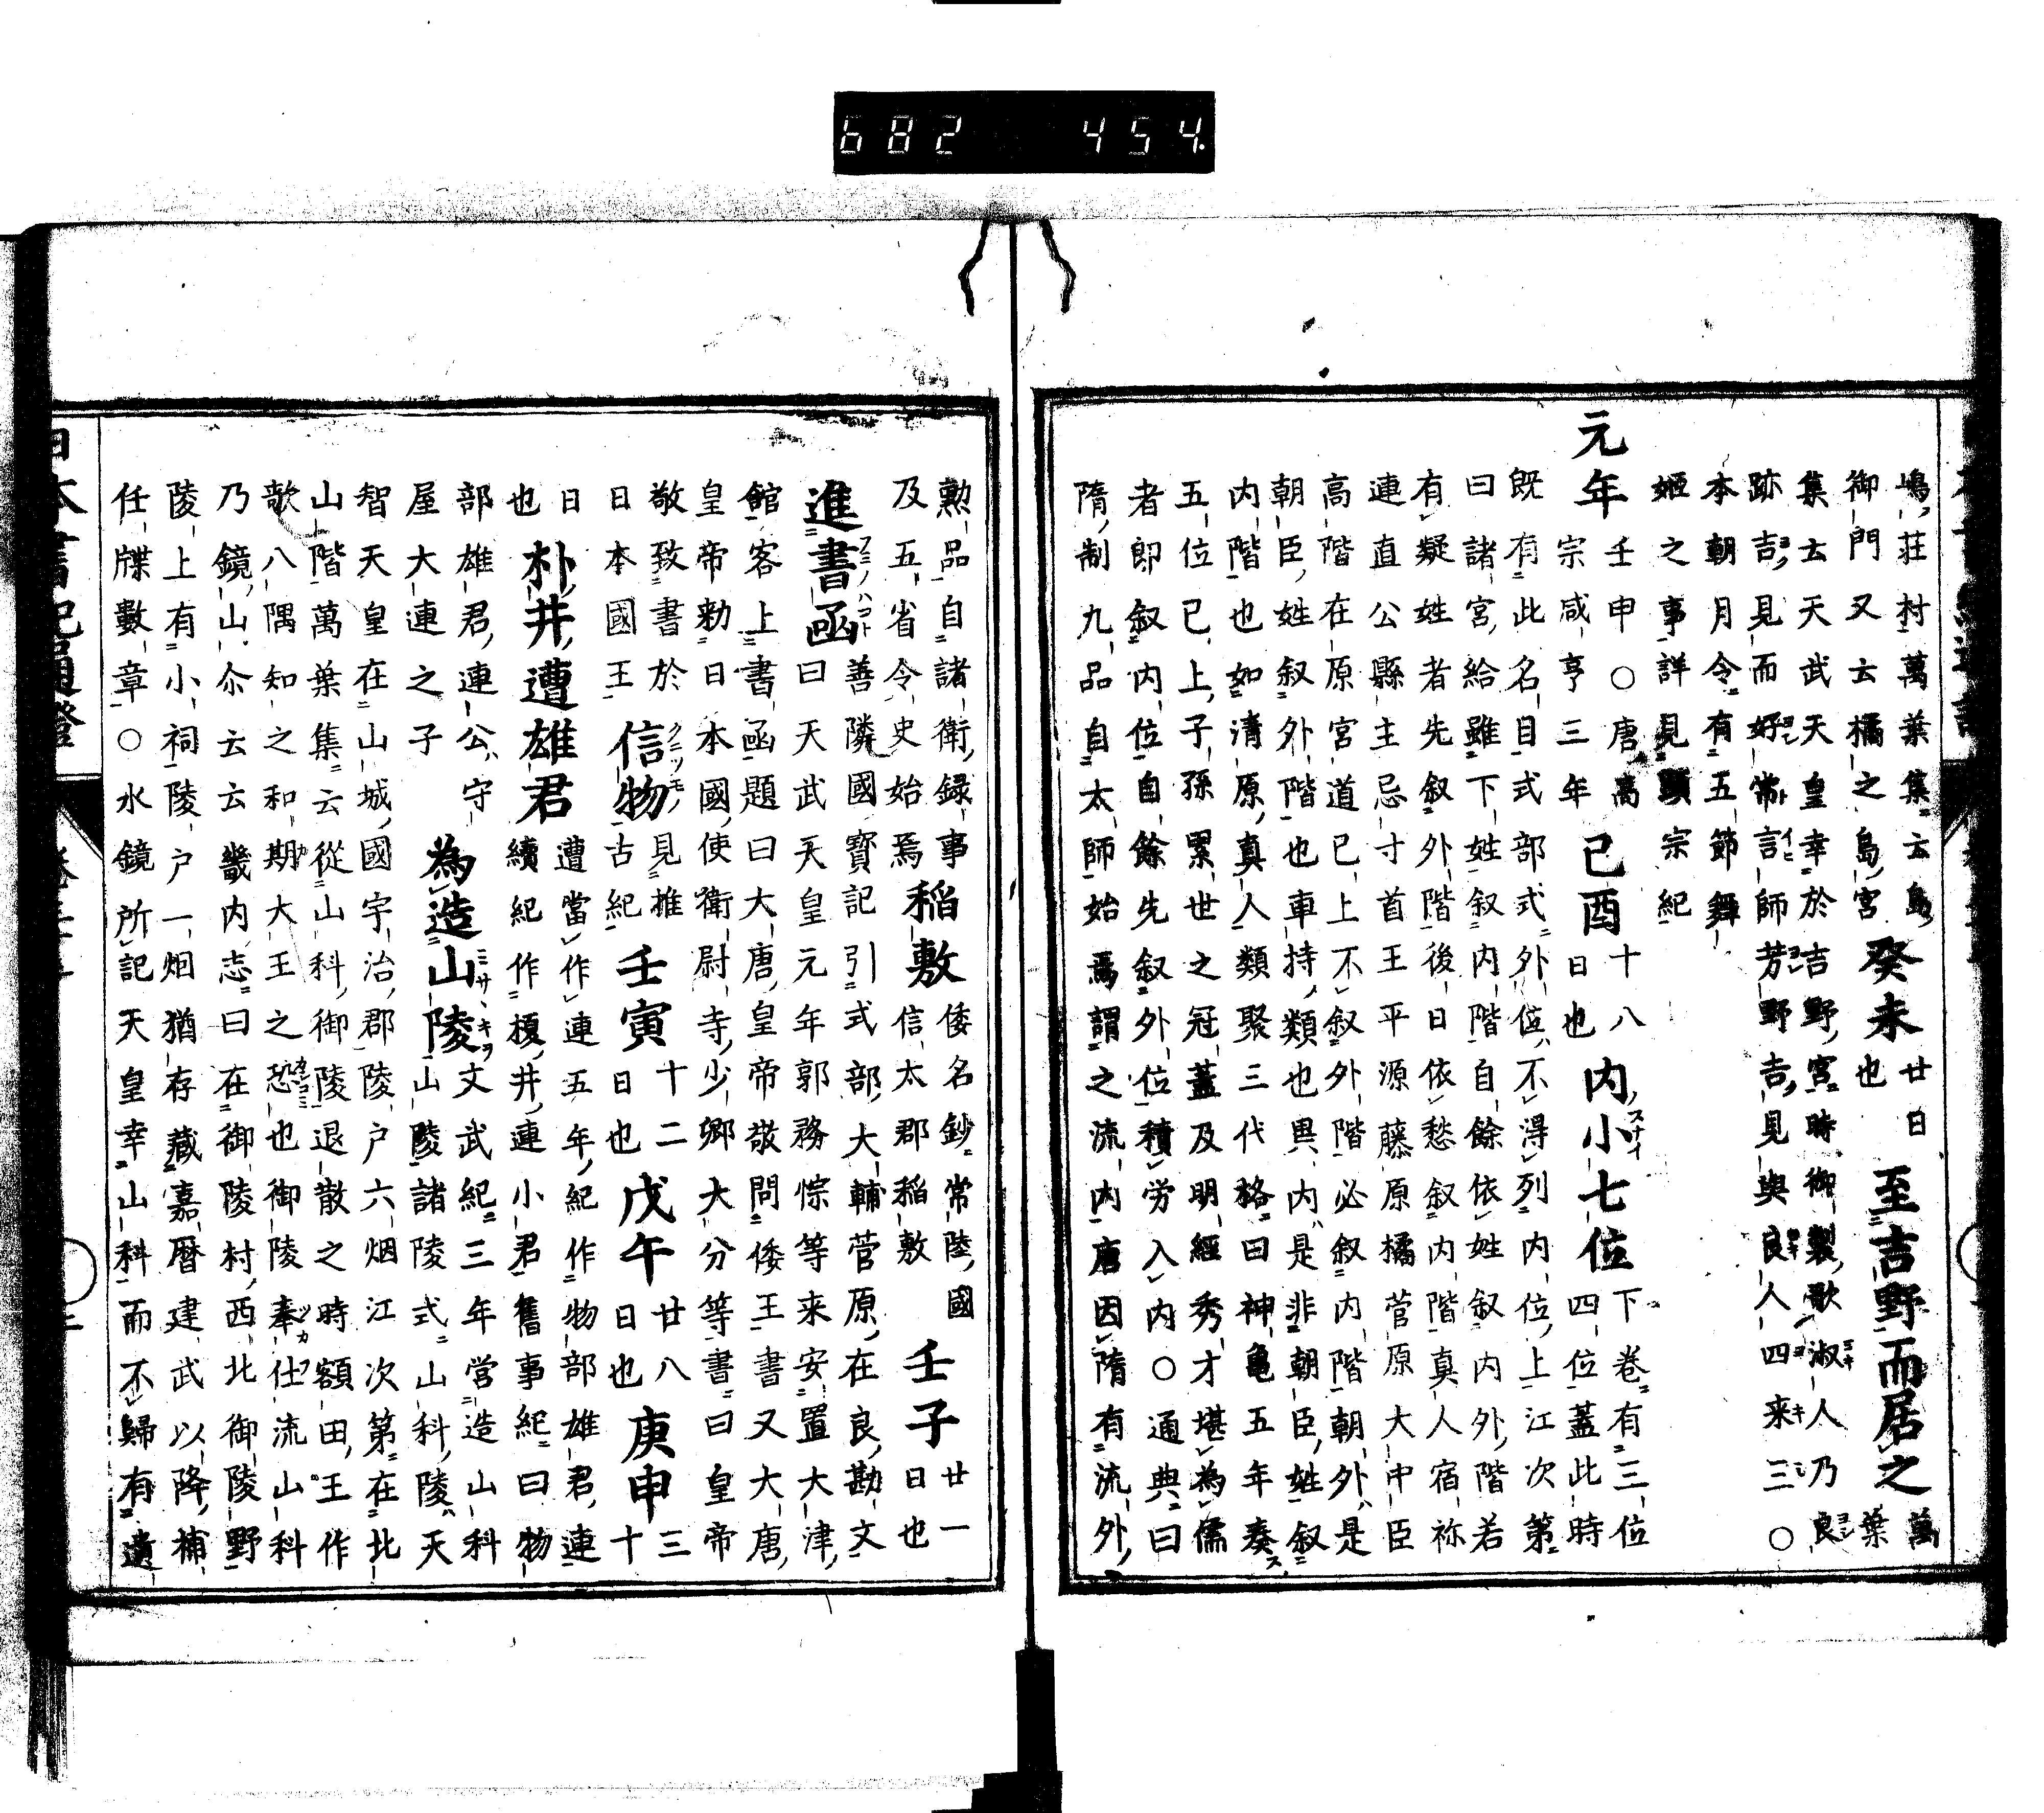 682 454.
嶋莊村萬葉集云島
御門又云橘之島宮
癸未
廿日
也
至吉野而居之
萬葉
集云天武天皇幸於吉野宮時御製歌淑人乃良
跡吉見而好常言師芳野吉見與良人四来三○
本朝月令有五節舞
姬之事詳見顯宗紀
元年
壬申○唐高
宗咸亨三年
己酉
十八
日也
内小七位
下卷有三位
四位蓋此時
既有此名目式部式外位不得列内位上江次第
曰諸宮給雖下姓叙内階自餘依姓叙内外階若
有疑姓者先叙外階後日依愁叙内階真人宿祢
連直公縣主忌寸首王平源藤原橘菅原大中臣
高階在原宮道已上不叙外階必叙内階朝外是
朝臣姓叙外階也車持類也異内是非朝臣姓叙
内階也如清原真人類聚三代格曰神亀五年奏
五位已上子孫累世之冠蓋及明經秀才堪為儒
者即叙内位自餘先叙外位積労入内○通典曰
隋制九品自太師始焉謂之流内唐因隋有流外
勲品自諸衛録事
及五省令史始焉
稲敷
倭名鈔常陸國
信太郡稲敷
壬子
廿一
日也
進書函
善隣國寳記引式部大輔菅原在良勘文
曰天武天皇元年郭務悰等来安置大津
館客上書函題曰大唐皇帝敬問倭王書又大唐
皇帝勅日本國使衛尉寺少卿大分等書曰皇帝
敬致書於
日本國王
信物
見推
古紀
壬寅
十二
日也
戊午
廿八
日也
庚申
三
十
日
也
朴井遭雄君
遭當作連五年紀作物部雄君連
續紀作榎井連小君舊事紀曰物
部雄君連公守
屋大連之子
為造山陵
文武紀三年営造山科
山陵諸陵式山科陵天
智天皇在山城國宇治郡陵戸六烟江次第在北
山階萬葉集云從山科御陵退散之時額田王作
歌八隅知之和期大王之恐也御陵奉仕流山科
乃鏡山尒云云畿内志曰在御陵村西北御陵野
陵上有小祠陵戸一烟猶存藏嘉暦建武以降補
任牒數章○水鏡所記天皇幸山科而不歸有遺
日本書紀通證